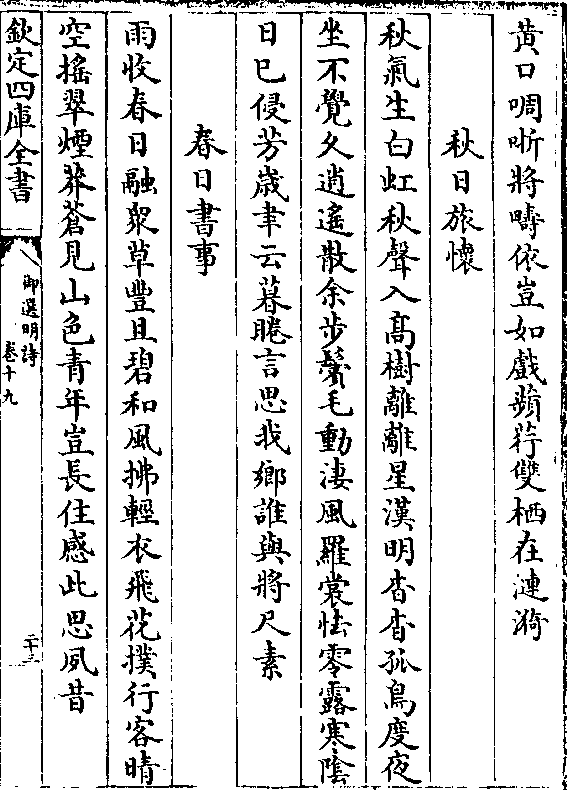 黄口啁哳將疇依豈如戲蘋荇雙栖在漣漪
秋日旅懷
秋氣生白虹秋聲入髙樹離離星漢明杳杳孤鳥度夜
坐不覺久逍遙散余步鬢毛動淒風羅裳怯零露寒陰
日已侵芳歲聿云暮睠言思我鄉誰與將尺素
春日書事
雨收春日融衆草豐且碧和風拂輕衣飛花撲行客晴
空搖翠煙莽蒼見山色青年豈長住感此思夙昔
欽定四庫全書
御選明詩
卷十九
二十三